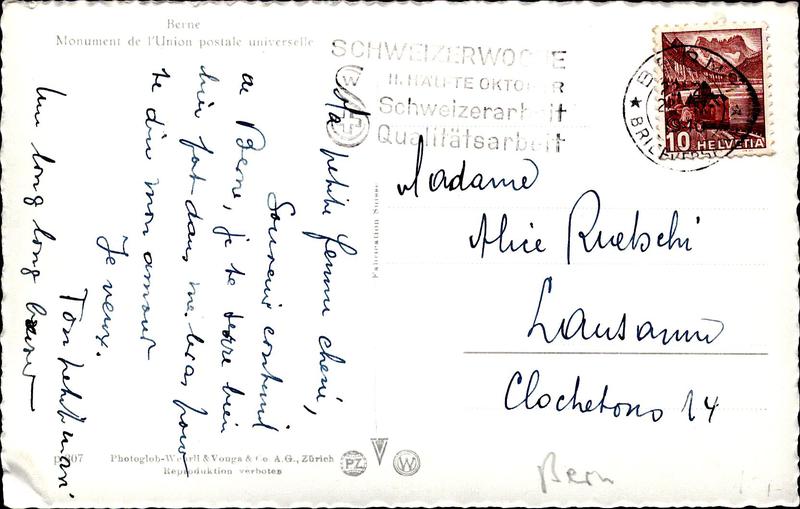 Berne
Monument de l'Union postale universelle
SCHWEIZERWOCHE
II. HÄLFTE OKTOBER
Schweizerarbeit
Qualitätsarbeit
HELVETIA
10
Ma petite femme chérie,
Souvenir continuel
de Berne, je te serre bien
bien fort dans mes bras pour
te dire mon amour
Je veux.
Ton petit mari
Un long long baiser
Madame
Alice Ruetschi
Lausanne
Clochetons 14
Fabrication Suisse
Photoglob-Wehrli & Vouga & Co A.G., Zürich
Reproduktion verboten
PZ
W
Bern